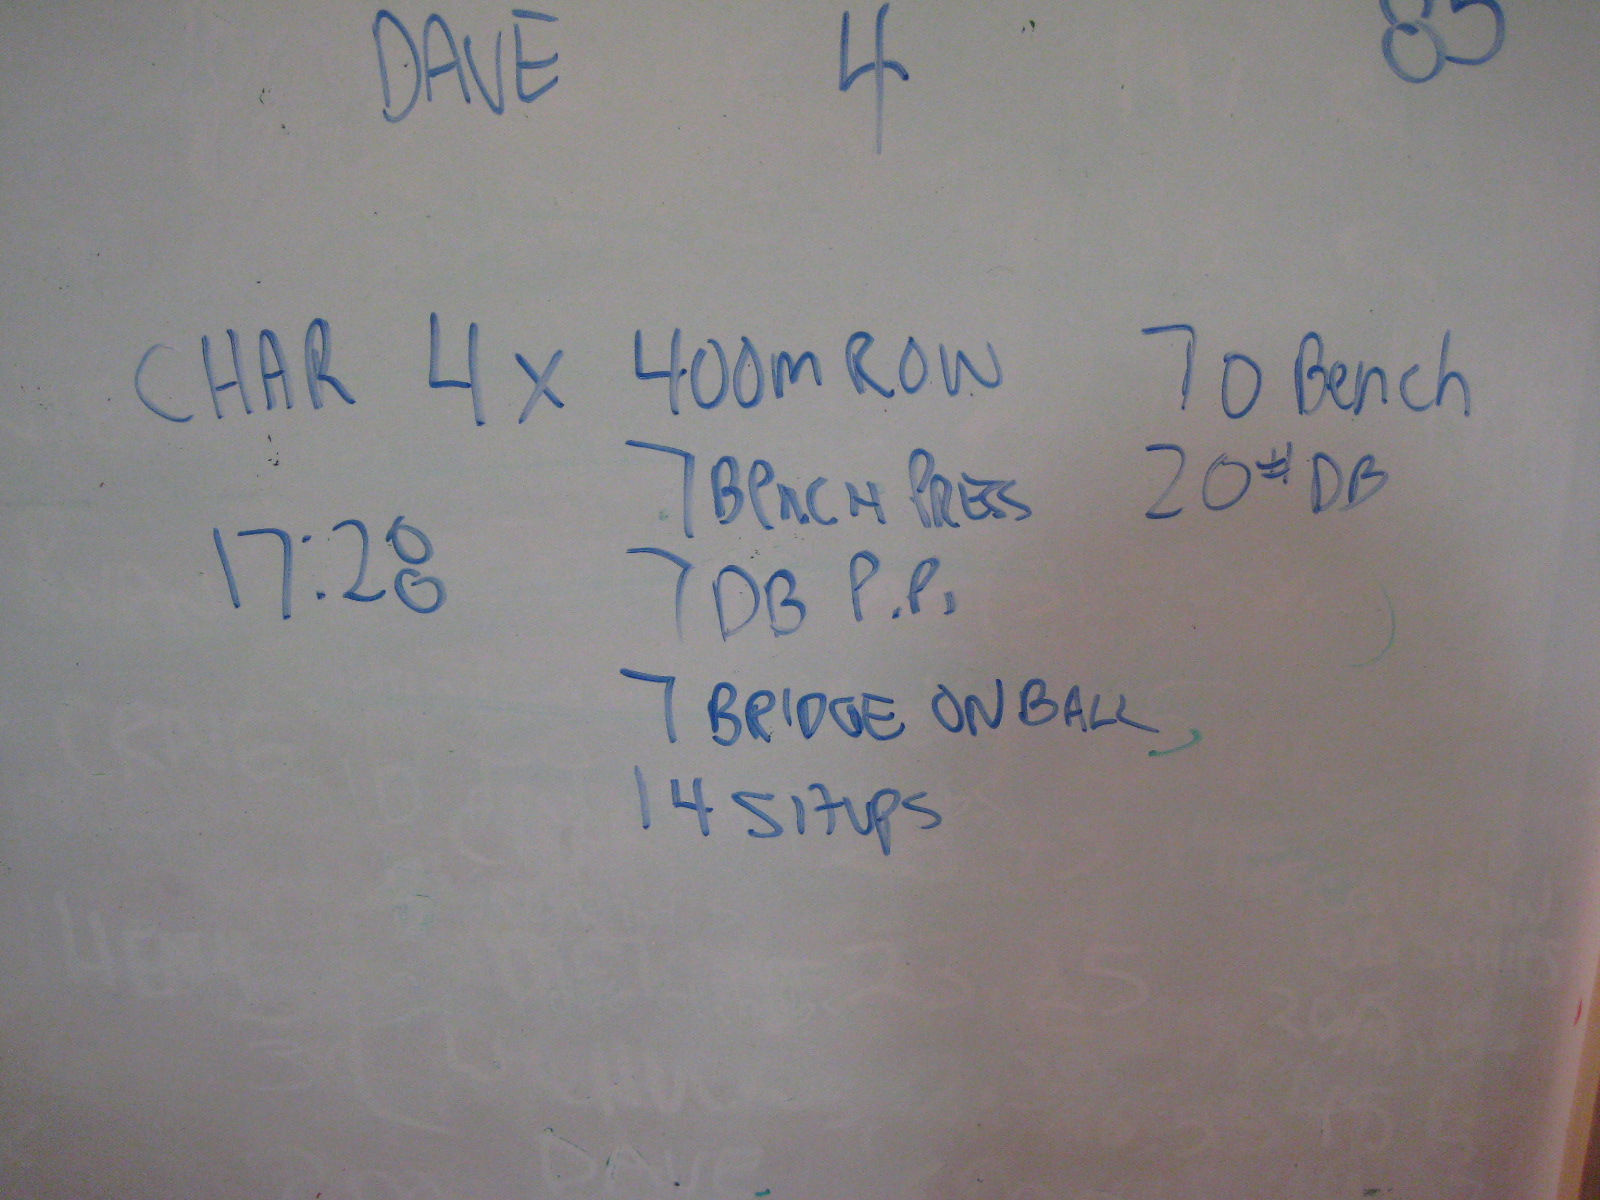 DAVE 4 85
CHAR 4 x 400m ROW 70 Bench
7 BENCH PRESS 20# DB
17:28
7 DB P.P.
7 BRIDGE ON BALL
14 SITUPS
DAVE